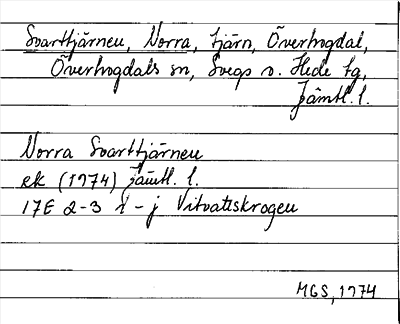 Svarttjärnen, Norra, tjärn, Överhogdal,
Överhogdals sn, Svegs o. Hede tg,
Jämtl. l.
Norra Svarttjärnen
ek (1974) Jämtl. l.
17E 2-3 i-j Vitvattskrogen
MGS, 1974